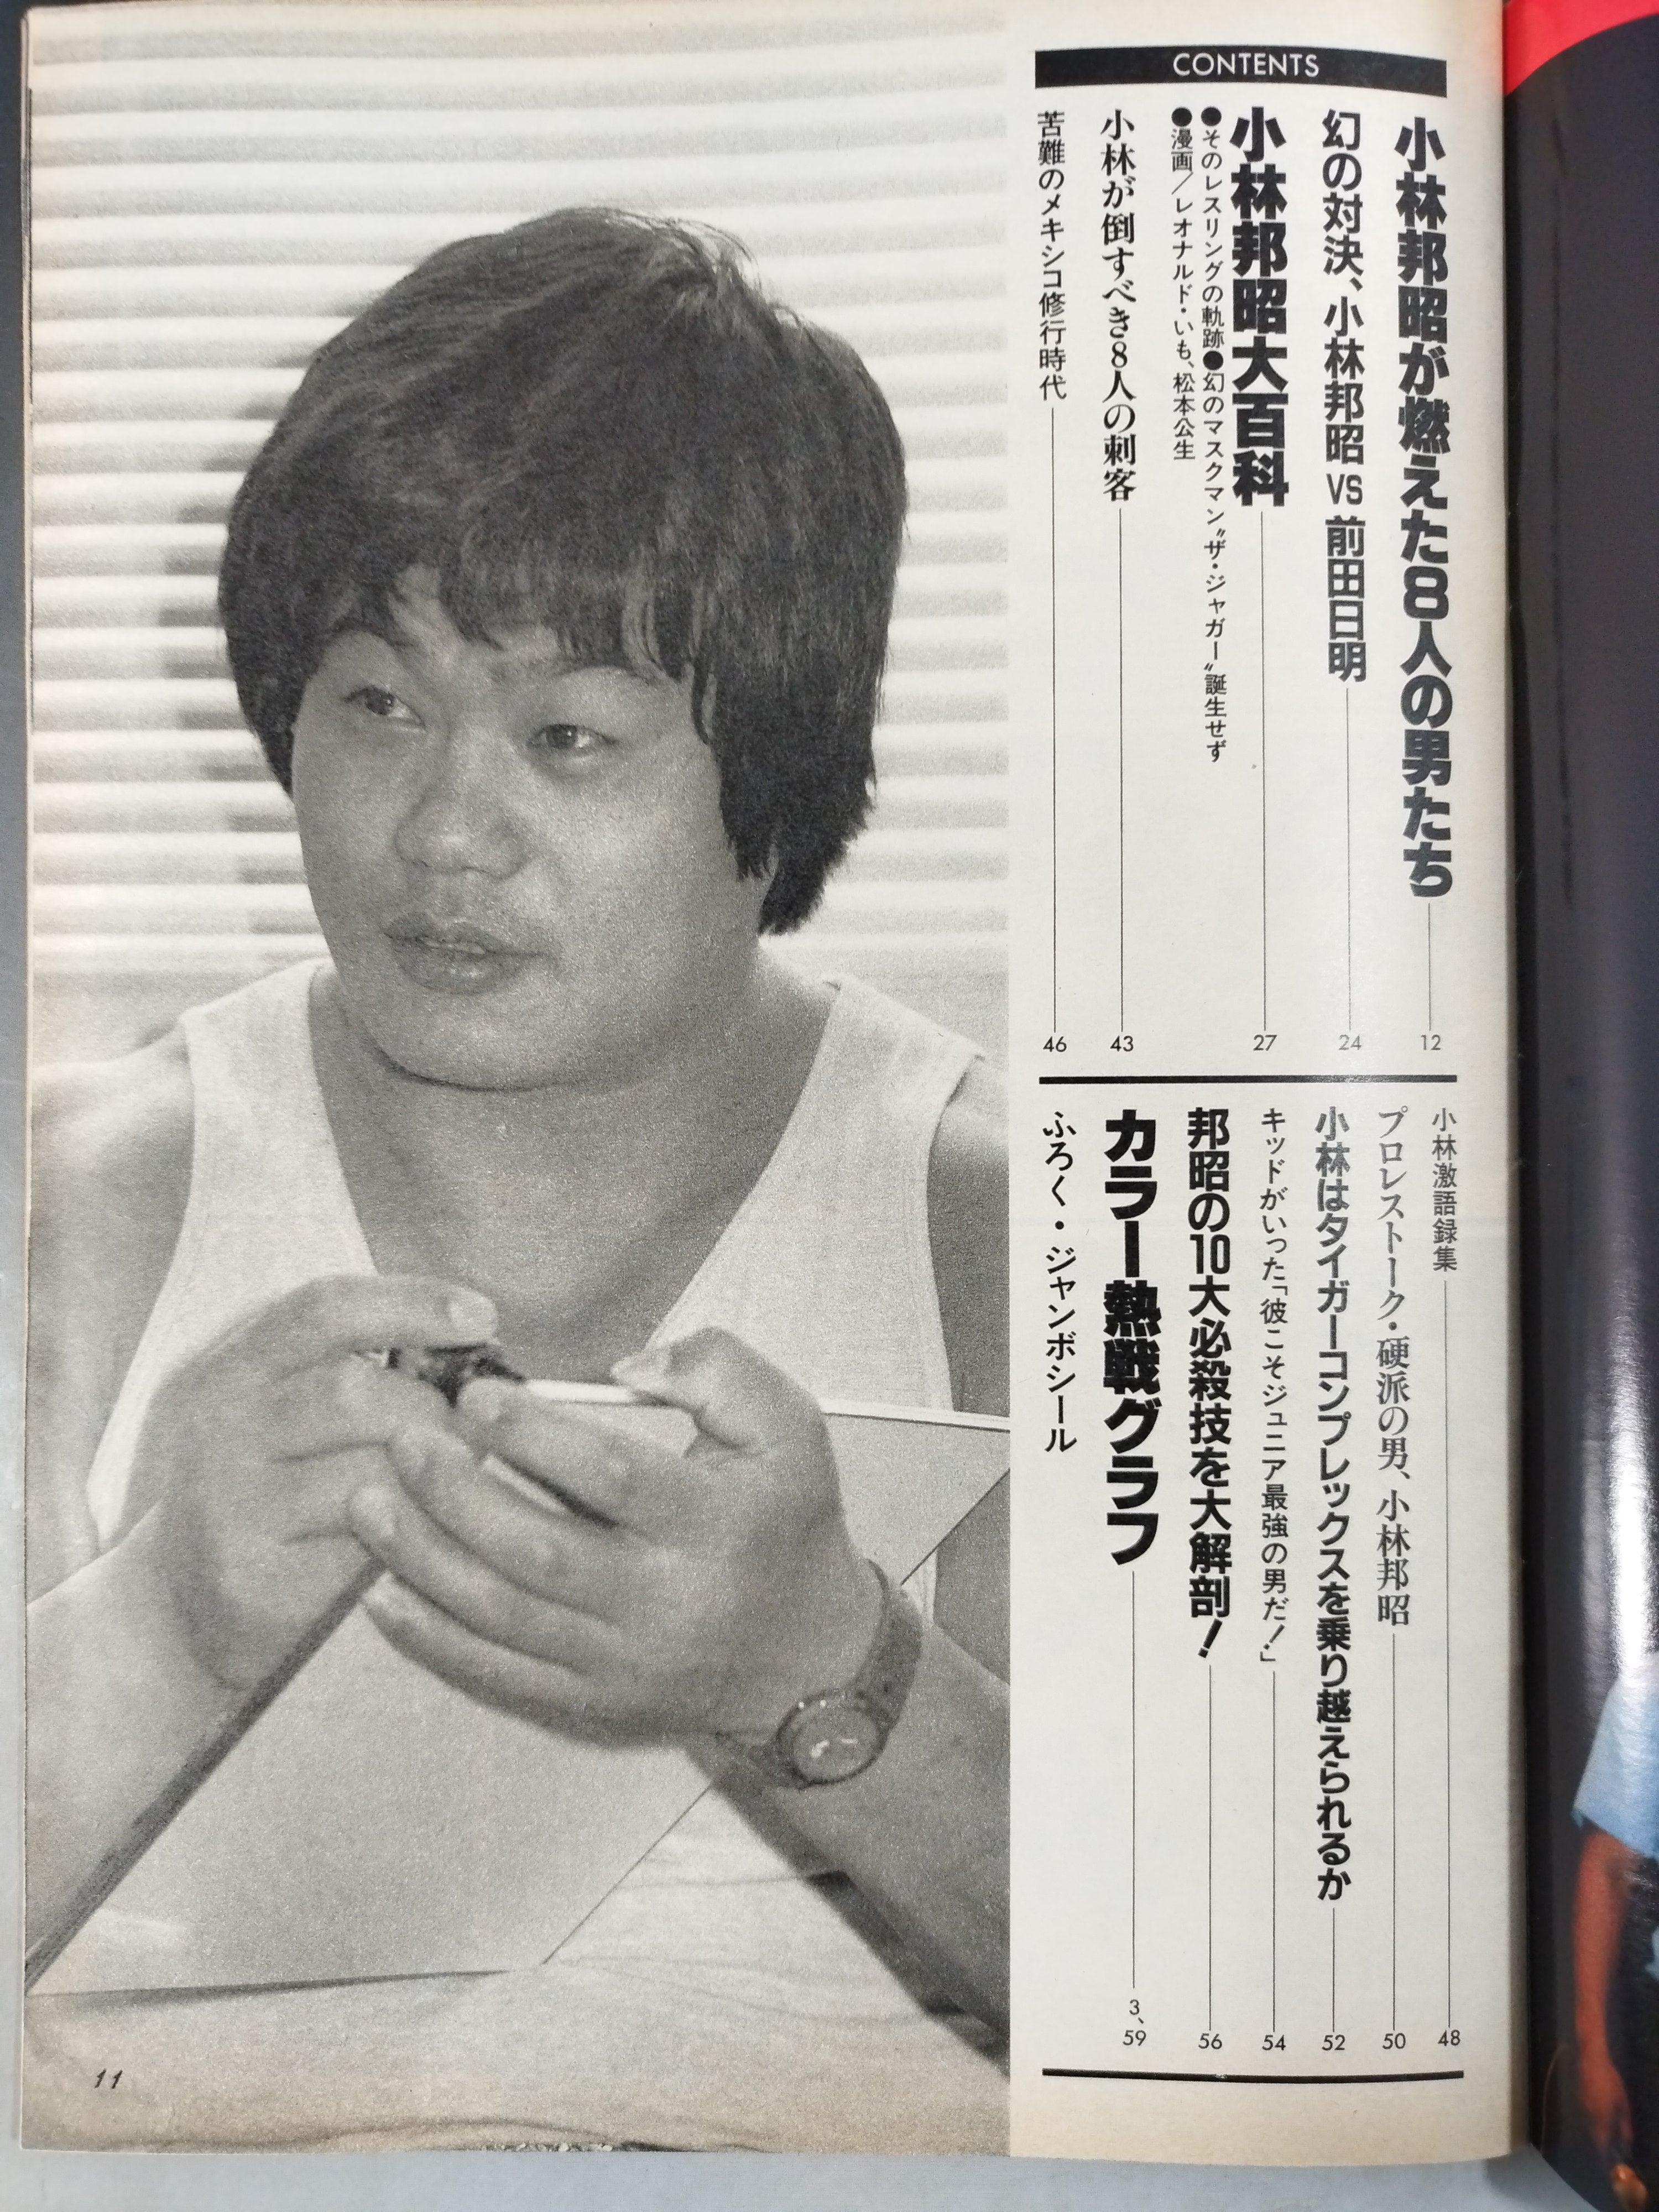 CONTENTS
小林邦昭が燃えた8人の男たち
12
幻の対決、小林邦昭 VS 前田日明
24
小林邦昭大百科
27
●そのレスリングの軌跡●幻のマスクマン〝ザ・ジャガー〟誕生せず
●漫画/レオナルド・いも、松本公生
小林が倒すべき8人の刺客
43
苦難のメキシコ修行時代
46
小林激語録集
48
プロレストーク・硬派の男、小林邦昭
50
小林はタイガーコンプレックスを乗り越えられるか
52
キッドがいった「彼こそジュニア最強の男だ!」
54
邦昭の10大必殺技を大解剖!
56
カラー熱戦グラフ
3、59
ふろく・ジャンボシール
11